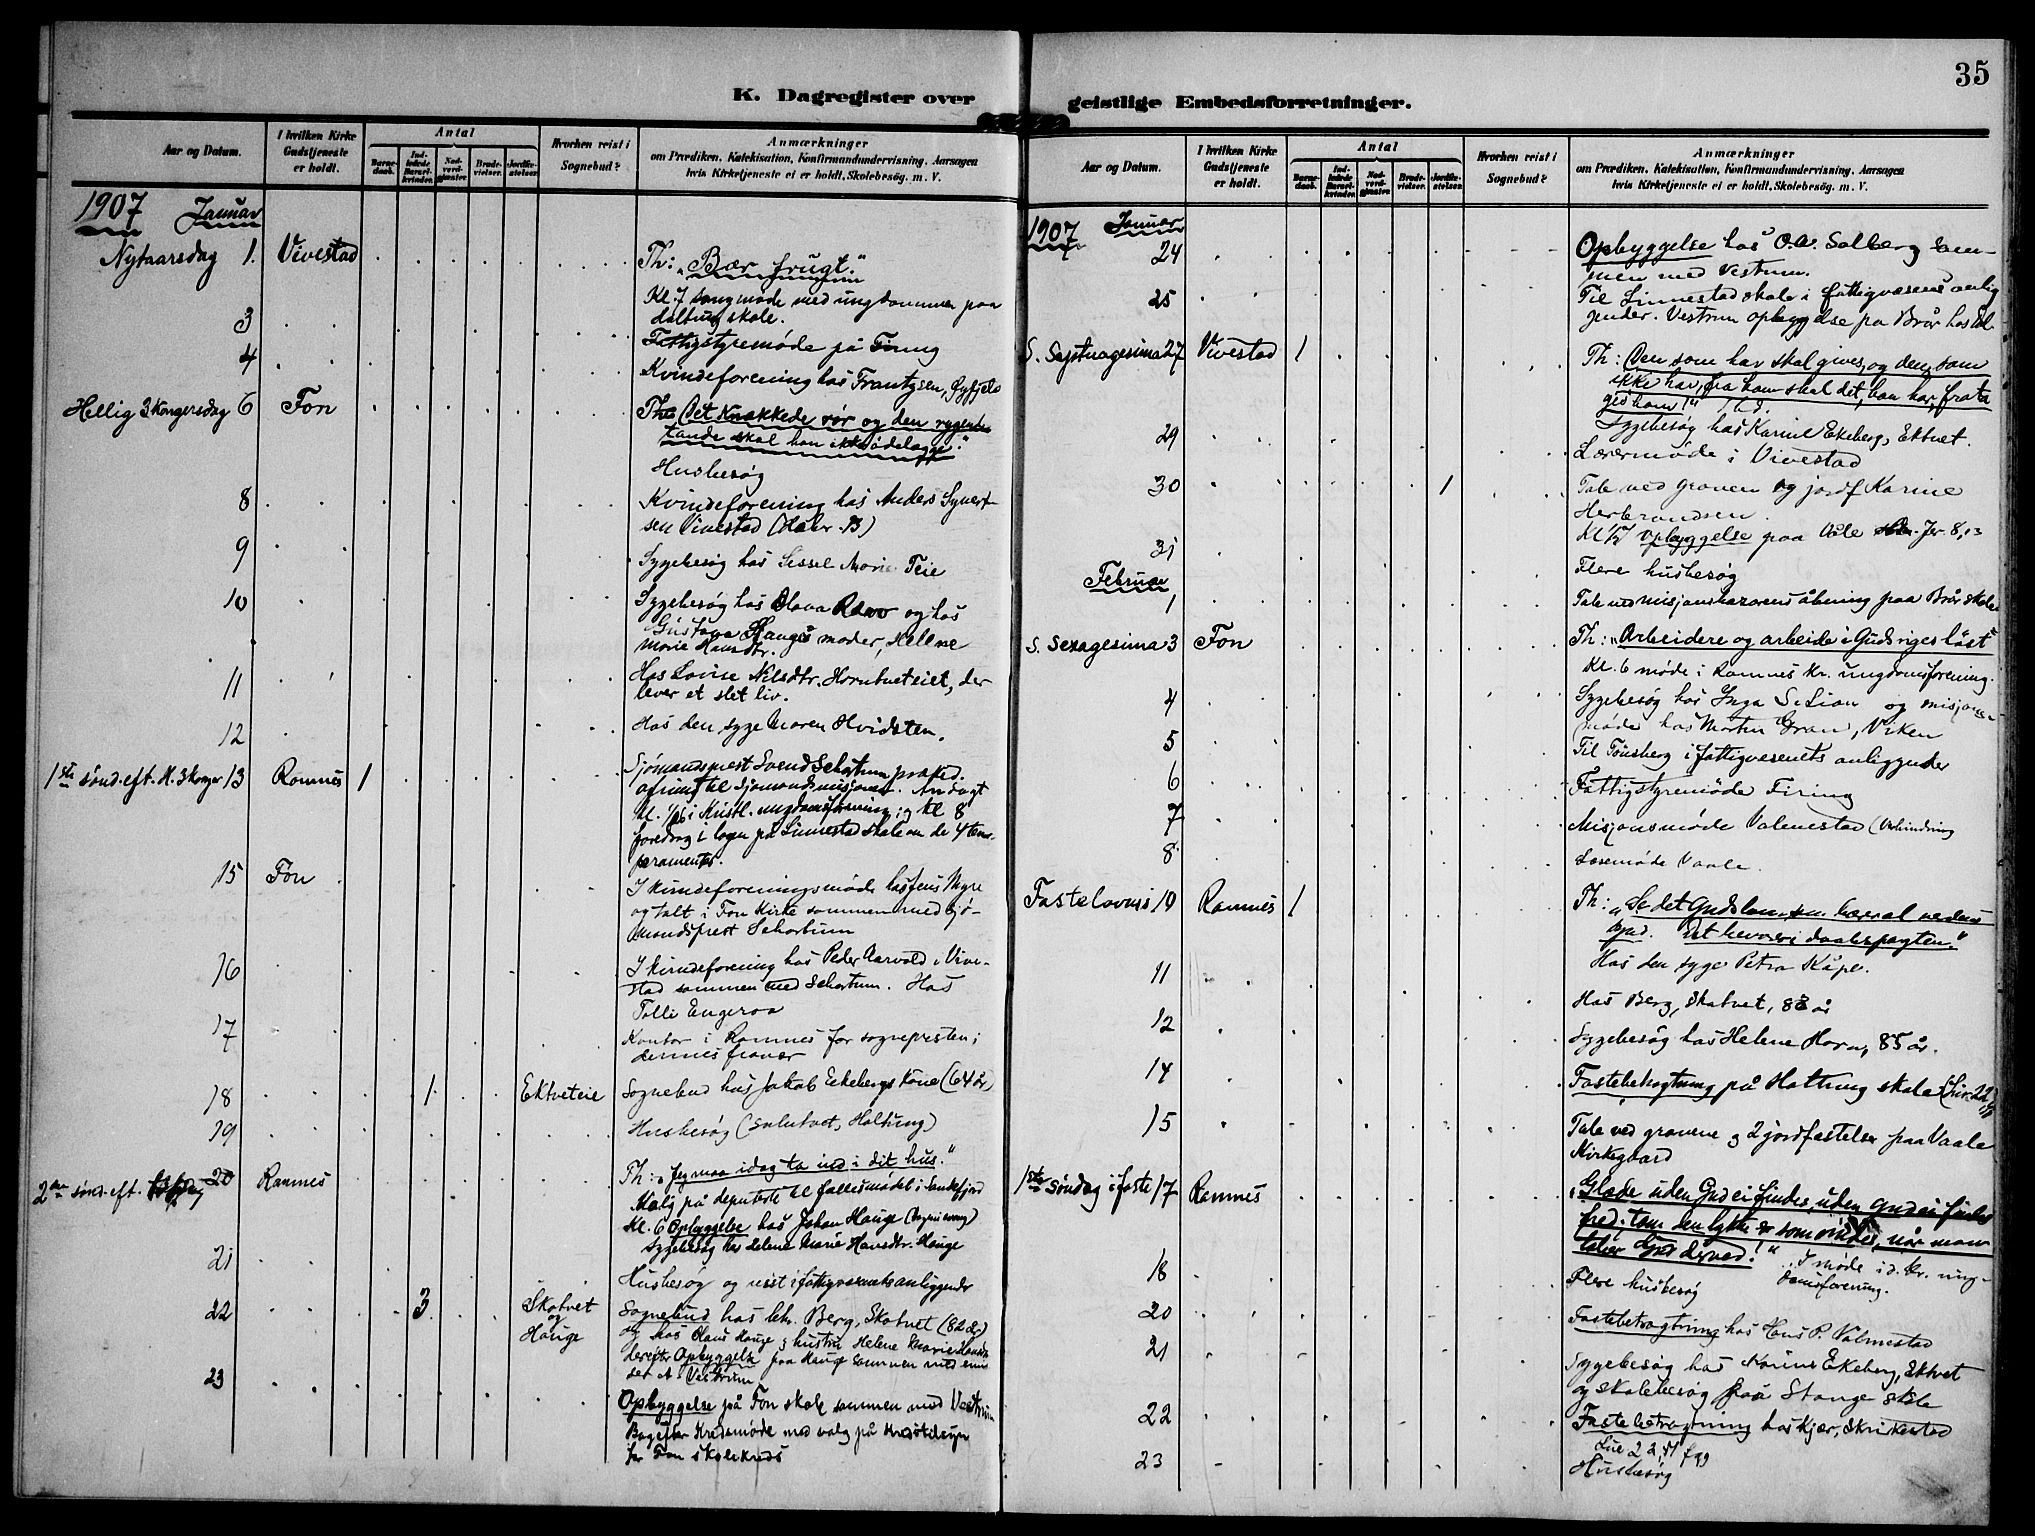 35
K. Dagregister over
geistlige Embedsforretninger.
Aar og Datum.
I hvilken Kirke Gudstjeneste er holdt.
Antal
Barnedaab.
Indledede Barselkvinder.
Nadverdgjæster.
Brudevielser.
Jordfæstelser.
Hvorhen reist i Sognebud?
Anmærkninger
om Prædiken, Katekisation, Konfirmandundervisning, Aarsagen
hvis Kirketjeneste ei er holdt, Skolebesøg. m. V.
1907 Januar
Nytaarsdag 1. Vivestad
Th: "Bær frugt."
Kl. 7 sangmøde med ungdommen paa
skole.
3 Fattigstyremøde på
4 Kvindeforening hos Frantzsen,
Hellig 3 Kongersdag 6 Fon
Th: Det knækkede rør og den rygende
tande skal han ikke ødelægge."
Husbesøg
8 Kvindeforening hos Anders Syvert-
sen Vivestad
9 Sygebesøg hos Sissel Marie Teie
10 Sygebesøg hos Olava og hos
Gustava Hauges moder, Helene
Marie Hansdtr.
11 Hos Lovise Nilsdtr. Horntveteiet, der
lever et slet liv.
12 Hos den syge Maren Hvidsten.
1ste sønd. eft. H. 3 Konger 13 Ramnes 1
Sjømandsprest Svend Schartum præked.
ofring til Sjømandsmisjonen. Andagt
Kl. i Kristl. ungdomsforening; og kl 8
foredrag i logen på Linnestad skole om de 4 tem-
peramenter.
15 Fon
I kvindeforeningsmøde hos Jens Myre
og talt i Fon Kirke sammen med sjø-
mandsprest Schartum
16 I kvindeforening hos Peder Aarvold i Vive-
stad sammen med Schartum. Hos
Tolli Engeraa
17 Kontor i Ramnes for sognepresten i
dennes fravær
18 1 Ektveteie Sognebud hos Jakob Eekebergs Kone (64 år)
19 Husbesøg (Solutvet, Haltung)
2den sønd. eft. 20 Ramnes
Th: "Jeg maa idag ta ind i dit hus."
Valg på deputerte til fællesmødet i Sandefjord
Kl. 6 Opbyggelse hos Johan Hauge
Sygebesøg hos Helene Marie Hansdtr. Hauge
21 Husbesøg og reist i fattigvæsenets anliggender
22 3 Skotvet
og
Hauge
Sognebud hos lehr. Berg, Skotvet (82 år)
og hos Hauge og hustru Helene Marie Hansdtr
derefter Opbyggelse paa Hauge sammen med
Vestrum
23 Opbyggelse på Fon skole sammen med Vestrum
Bagefter Kredsmøde med valg på kredstilsyn
for Fon skolekreds
Aar og Datum.
I hvilken Kirke Gudstjeneste er holdt.
Antal
Barnedaab.
Indledede Barselkvinder.
Nadverdgjæster.
Brudevielser.
Jordfæstelser.
Hvorhen reist i Sognebud?
Anmærkninger
om Prædiken, Katekisation, Konfirmandundervisning, Aarsagen
hvis Kirketjeneste ei er holdt, Skolebesøg. m. V.
1907 Januar
24 Opbyggelse hos O.A. Solberg sam-
men med Vestrum.
25 Til Linnestad skole i fattigvæsenets anlig-
gender. Vestrum opbyggelse pa Brår
S. Septuagesima 27 Vivestad 1
Th: Den som har skal gives, og den, som
ikke har, fra ham skal det, han har, frata
ges ham!"
Sygebesøg hos Karine Ekeberg, Ektvet.
29 Lærermøde i Vivestad
30 1 Tale ved graven og jordf Karine
Herbrandsen.
Kl. opbyggelse paa Vaale Jer 8,
31 Flere husbesøg
Februar
1 Tale ved misjonsbazarens åbning paa Brår skole
S. Sexagesima 3 Fon
Th: "Arbeidere og arbeide i Guds riges høst"
Kl. 6 møde i Ramnes kr. ungdomsforening.
4 Sygebesøg hos Inga og misjons-
møde hos Martin Gran, Viken
5 Til Tønsberg i fattigvæsenets anliggender
6 Fattigstyremøde Firing
7 Misjonsmøde Valmestad
8 Læsemøde Vaale.
Fastelavns 10 Ramnes 1
Th: "Se det Guds lam, som bærer al verdens
synd. Det bevarer i daabspagten."
Hos den syge Petra Kåpe.
11 Hos Berg, Skotvet, 83 år
12 Sygebesøg hos Helene Horn, 85 år.
14 Fastebetragtning på Haltung skole
15 Tale ved gravene og 2 jordfæstelser paa Vaale
Kirkegaard
1ste Søndag i faste 17 Ramnes
"Glæde uden Gud ei findes, uden Gud ei findes
fred; tom den lykke er som vindes, når man
taber Gud derved!" I møde i d. kr. ung-
domsforening.
18 Flere husbesøg
20 Fastebetragtning hos Hans P. Valmestad
21 Sygebesøg hos Karine Ekeberg, Ektvet
og skolebesøg paa Stange skole
22 Fastebetragtning hos Kjær, Skrikestad
Luc 22,
23 Husbesøg